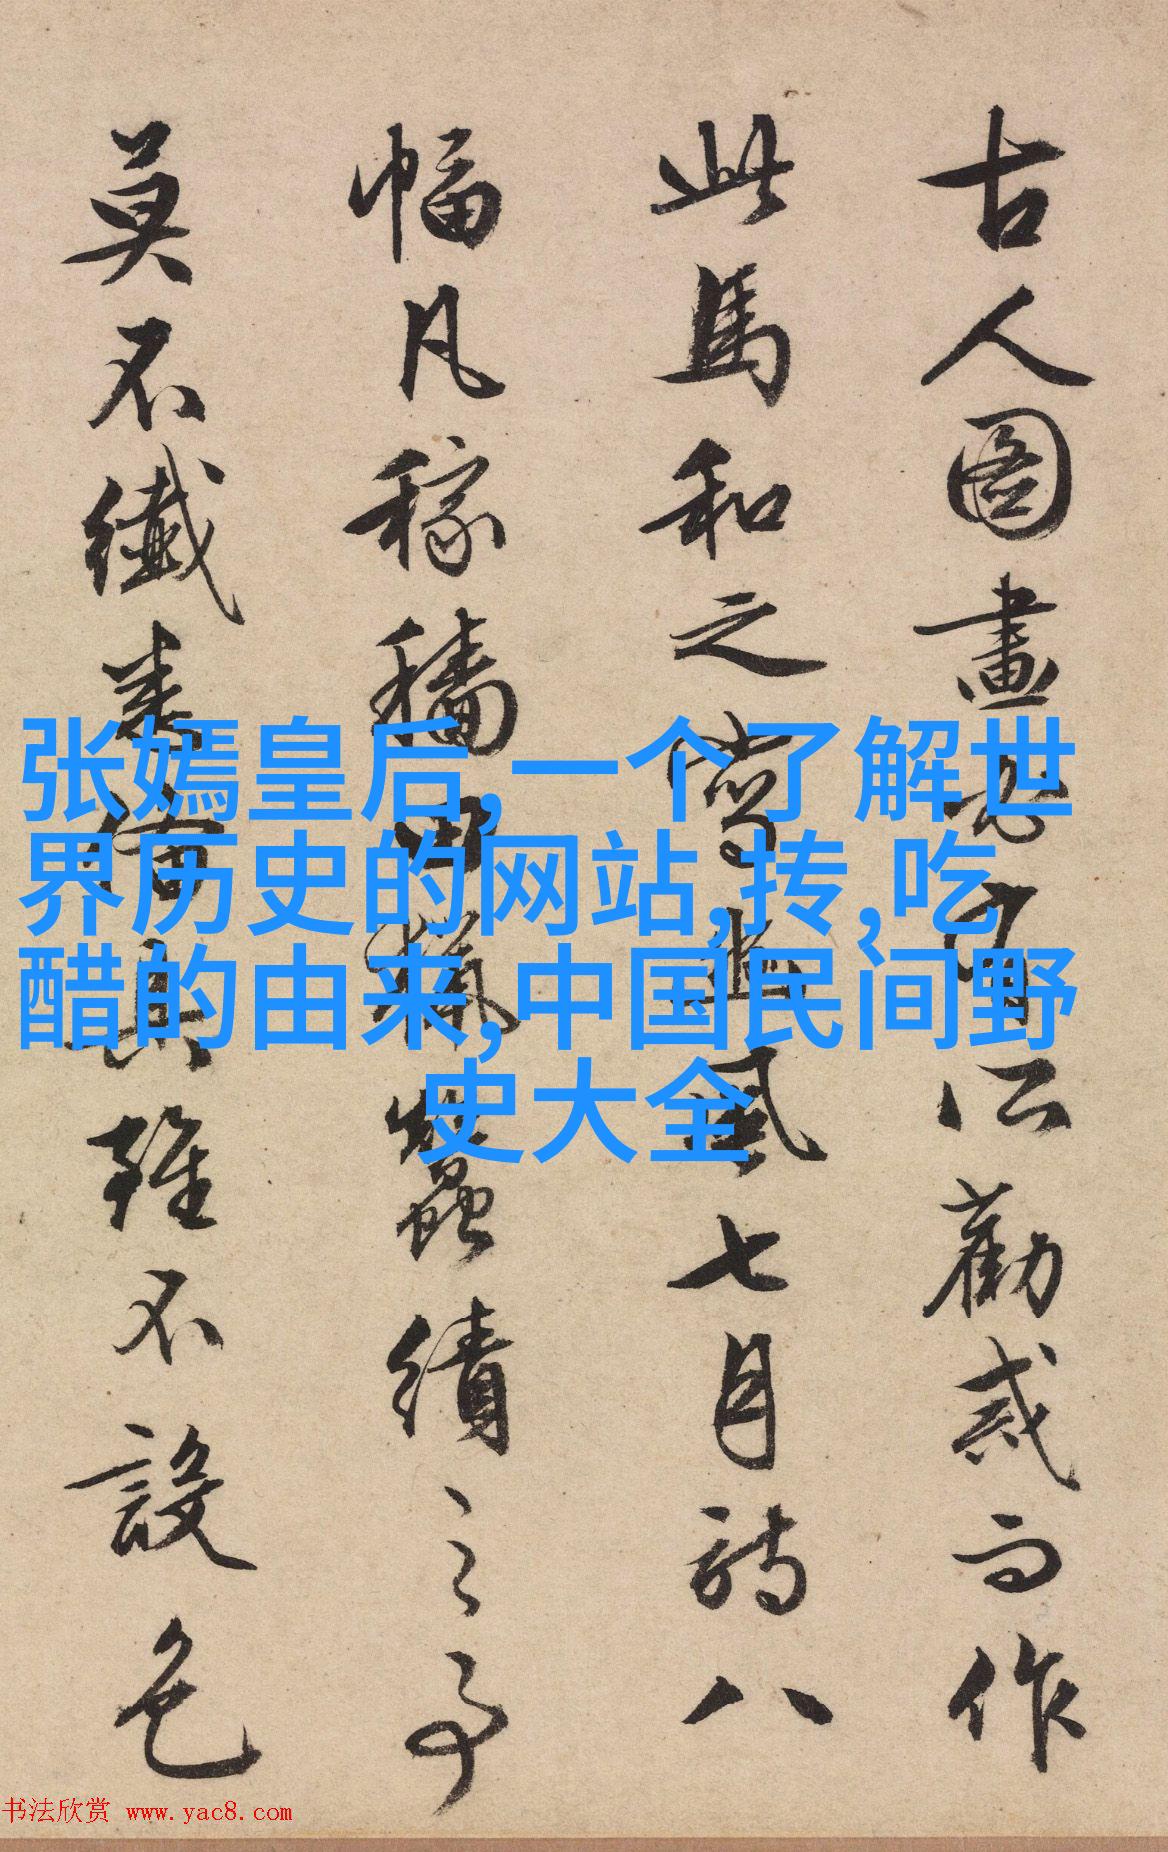 古人圖畫必有所勸戒而作
此馬和之寫豳風七月詩八
幅凡稼穡田獵蠶績之事
莫不纖悉備具雖不設色
张嫣皇后,一个了解世
界历史的网站,抟,吃
醋的由来,中国民间野
史大全
书法欣赏 www.yac8.com